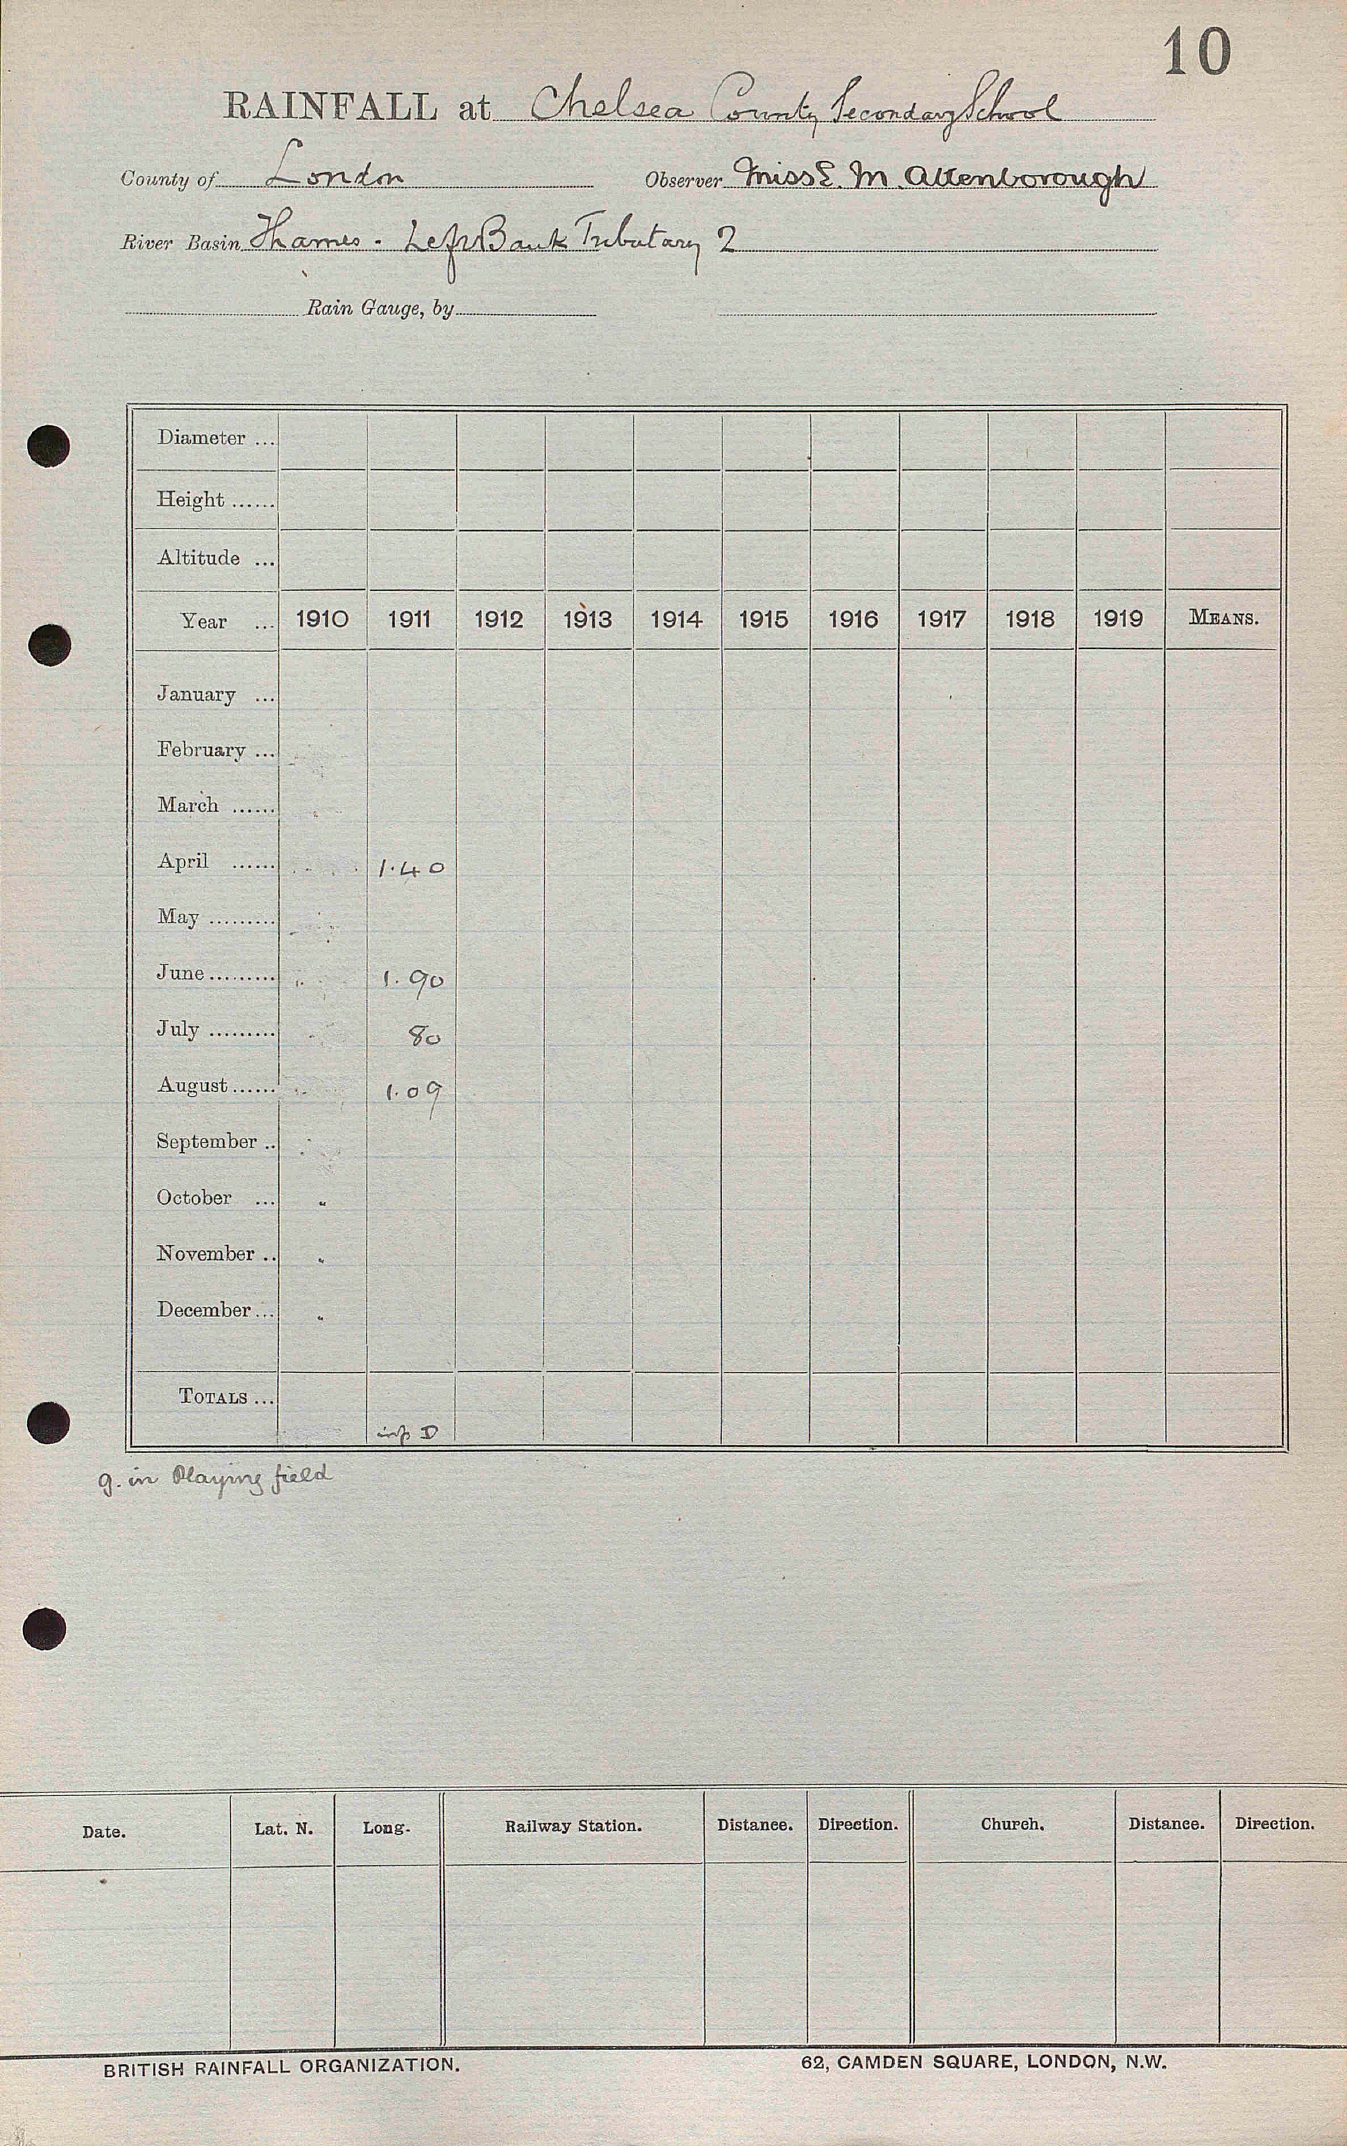 10
RAINFALL at Chelsea County Secondary School
County of London Observer Miss E. M. Attenborough
River Basin Thames - Left Bank Tributary 2
Rain Gauge, by
Diameter ...
Height ......
Altitude ...
Year ... 1910 1911 1912 1913 1914 1915 1916 1917 1918 1919 MEANS.
January ...
February ...
March ......
April ...... 1.40
May .........
June ......... 1.90
July ......... 80
August ...... 1.09
September ..
October ...
November ..
December ...
TOTALS ...
D
g. in Playing field
Date. Lat. N. Long. Railway Station. Distance. Direction. Church. Distance. Direction.
BRITISH RAINFALL ORGANIZATION. 62, CAMDEN SQUARE, LONDON, N.W.